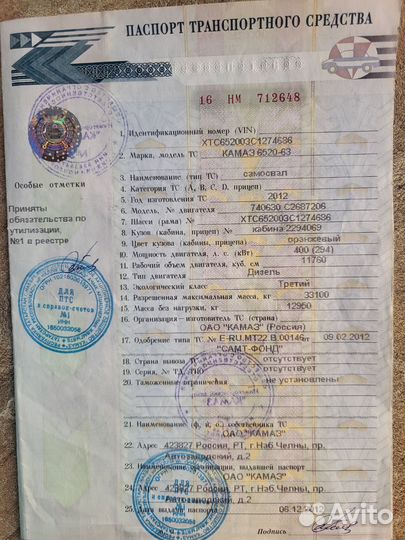 ПАСПОРТ ТРАНСПОРТНОГО СРЕДСТВА
16 НМ 712648
1. Идентификационный номер (VIN)
XTC652003C1274686
2. Марка, модель ТС КАМАЗ 6520-63
3. Наименование (тип ТС) самосвал
4. Категория ТС (A, B, C, D, прицеп) C
5. Год изготовления ТС 2012
6. Модель, № двигателя 740630 C2687206
7. Шасси (рама) № XTC652003C1274686
8. Кузов (кабина, прицеп) № кабина 2294069
9. Цвет кузова (кабины, прицепа) оранжевый
10. Мощность двигателя, л. с. (кВт) 400 (294)
11. Рабочий объем двигателя, куб. см 11760
12. Тип двигателя Дизель
13. Экологический класс Третий
14. Разрешенная максимальная масса, кг 33100
15. Масса без нагрузки, кг 12950
16. Организация–изготовитель ТС (страна)
ОАО "КАМАЗ" (Россия)
17. Одобрение типа ТС № E-RU.MT22.B.00146 от 09.02.2012
"САМТ-ФОНД"
18. Страна вывоза ТС отсутствует
19. Серия, № ТД, ТПО отсутствует
20. Таможенные ограничения не установлены
21. Наименование (ф., и., о.) собственника ТС
ОАО "КАМАЗ"
22. Адрес 423827 Россия, РТ, г.Наб.Челны, пр.
Автозаводский, д.2
23. Наименование организации, выдавшей паспорт
ОАО "КАМАЗ"
24. Адрес 423827 Россия, РТ, г.Наб.Челны, пр.
Автозаводский, д.2
25. Дата выдачи паспорта 06.12.2012
Подпись
Особые отметки
Приняты
обязательства по
утилизации,
№1 в реестре
ДЛЯ
ПТС
и справок-счетов
№1
ИНН
1650032058
ДЛЯ
1650032058
Avito